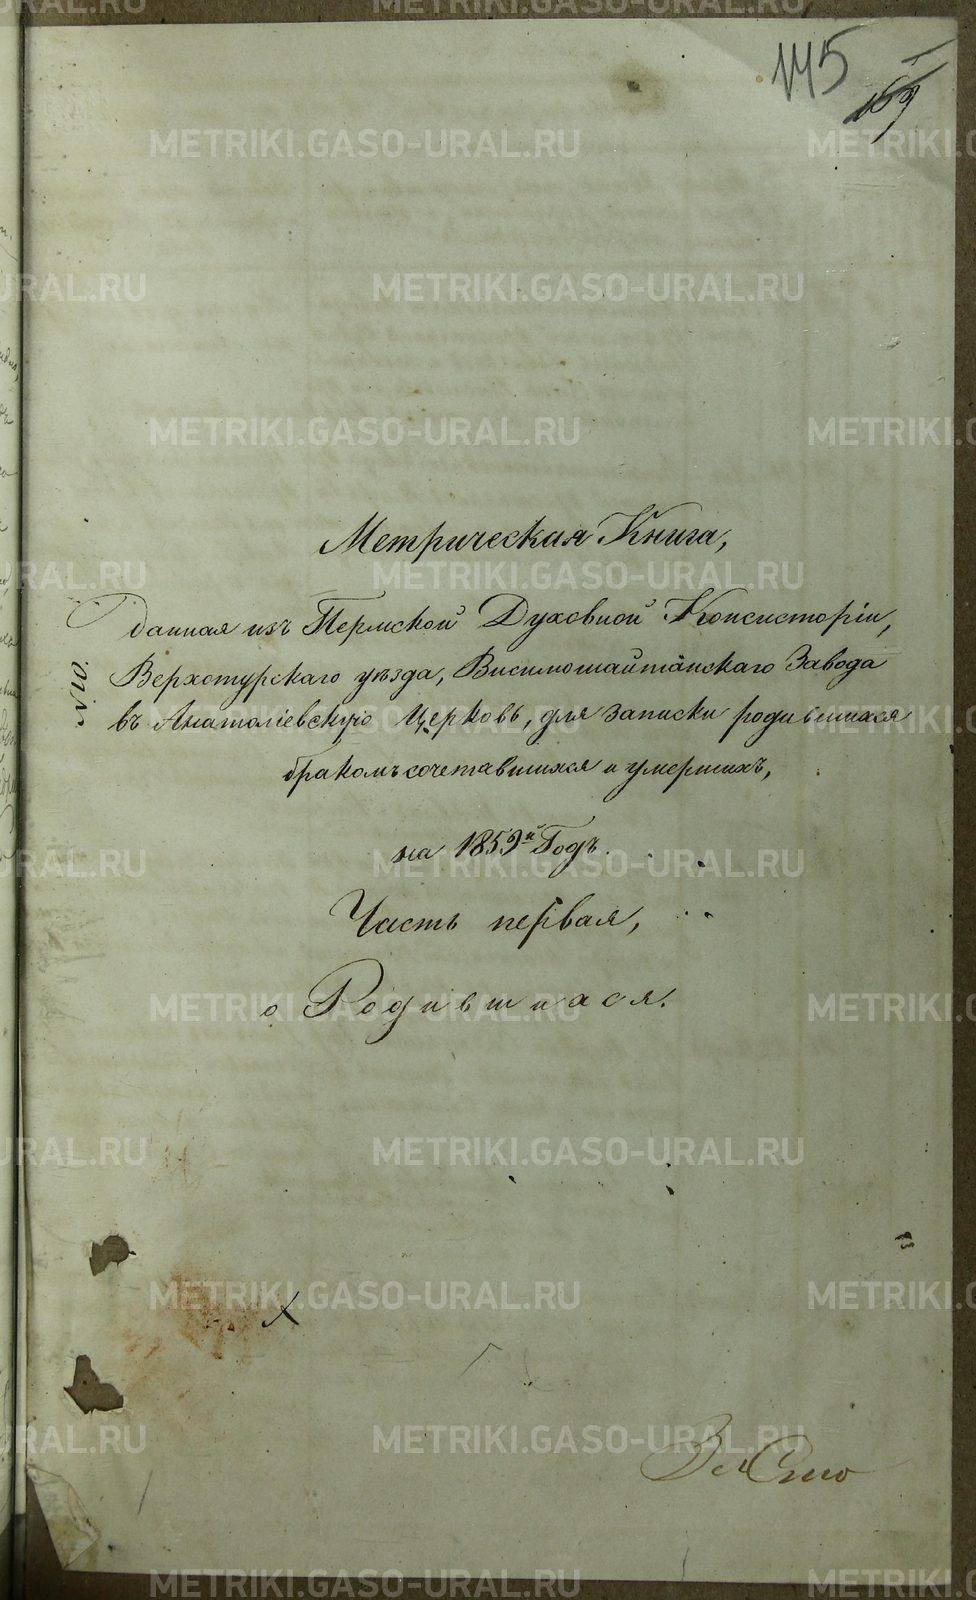 145
169
Метрическая Книга,
данная изъ Пермской Духовной Консисторіи,
Верхотурскаго уѣзда, Висимошайтанскаго Завода
въ Анатоліевскую Церковь, для записки родившихся
бракомъ сочетавшихся и умершихъ,
на 1859й Годъ.
Часть первая,
о Родившихся.
№10.
METRIKI.GASO-URAL.RU